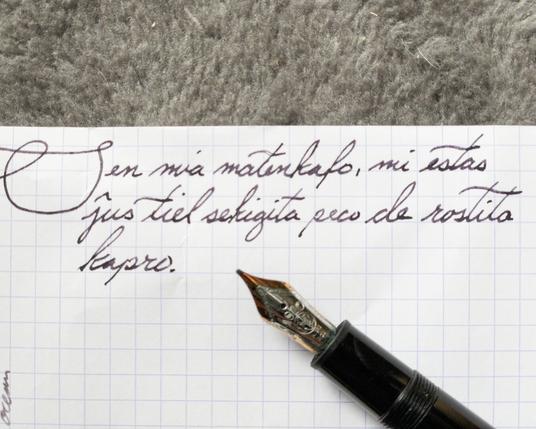 Sen mia matenkafo, mi estas
ĵus tiel sekigita peco de rostita
kapro.
ocean